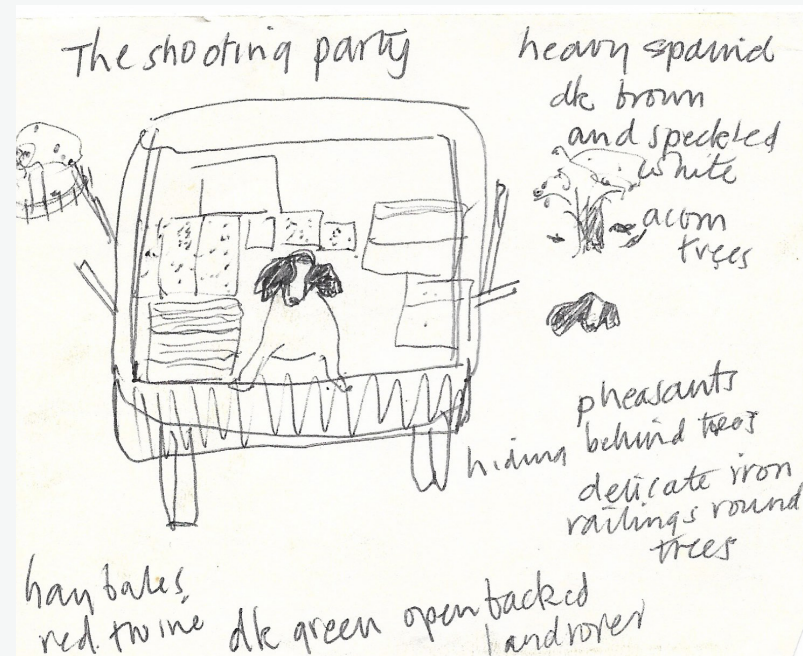 The shooting party
heavy spaniel
dk brown
and speckled
white
acorn
trees
pheasants
hiding behind trees
delicate iron
railings round
trees
hay bales,
red twine dk green open backed
landrover